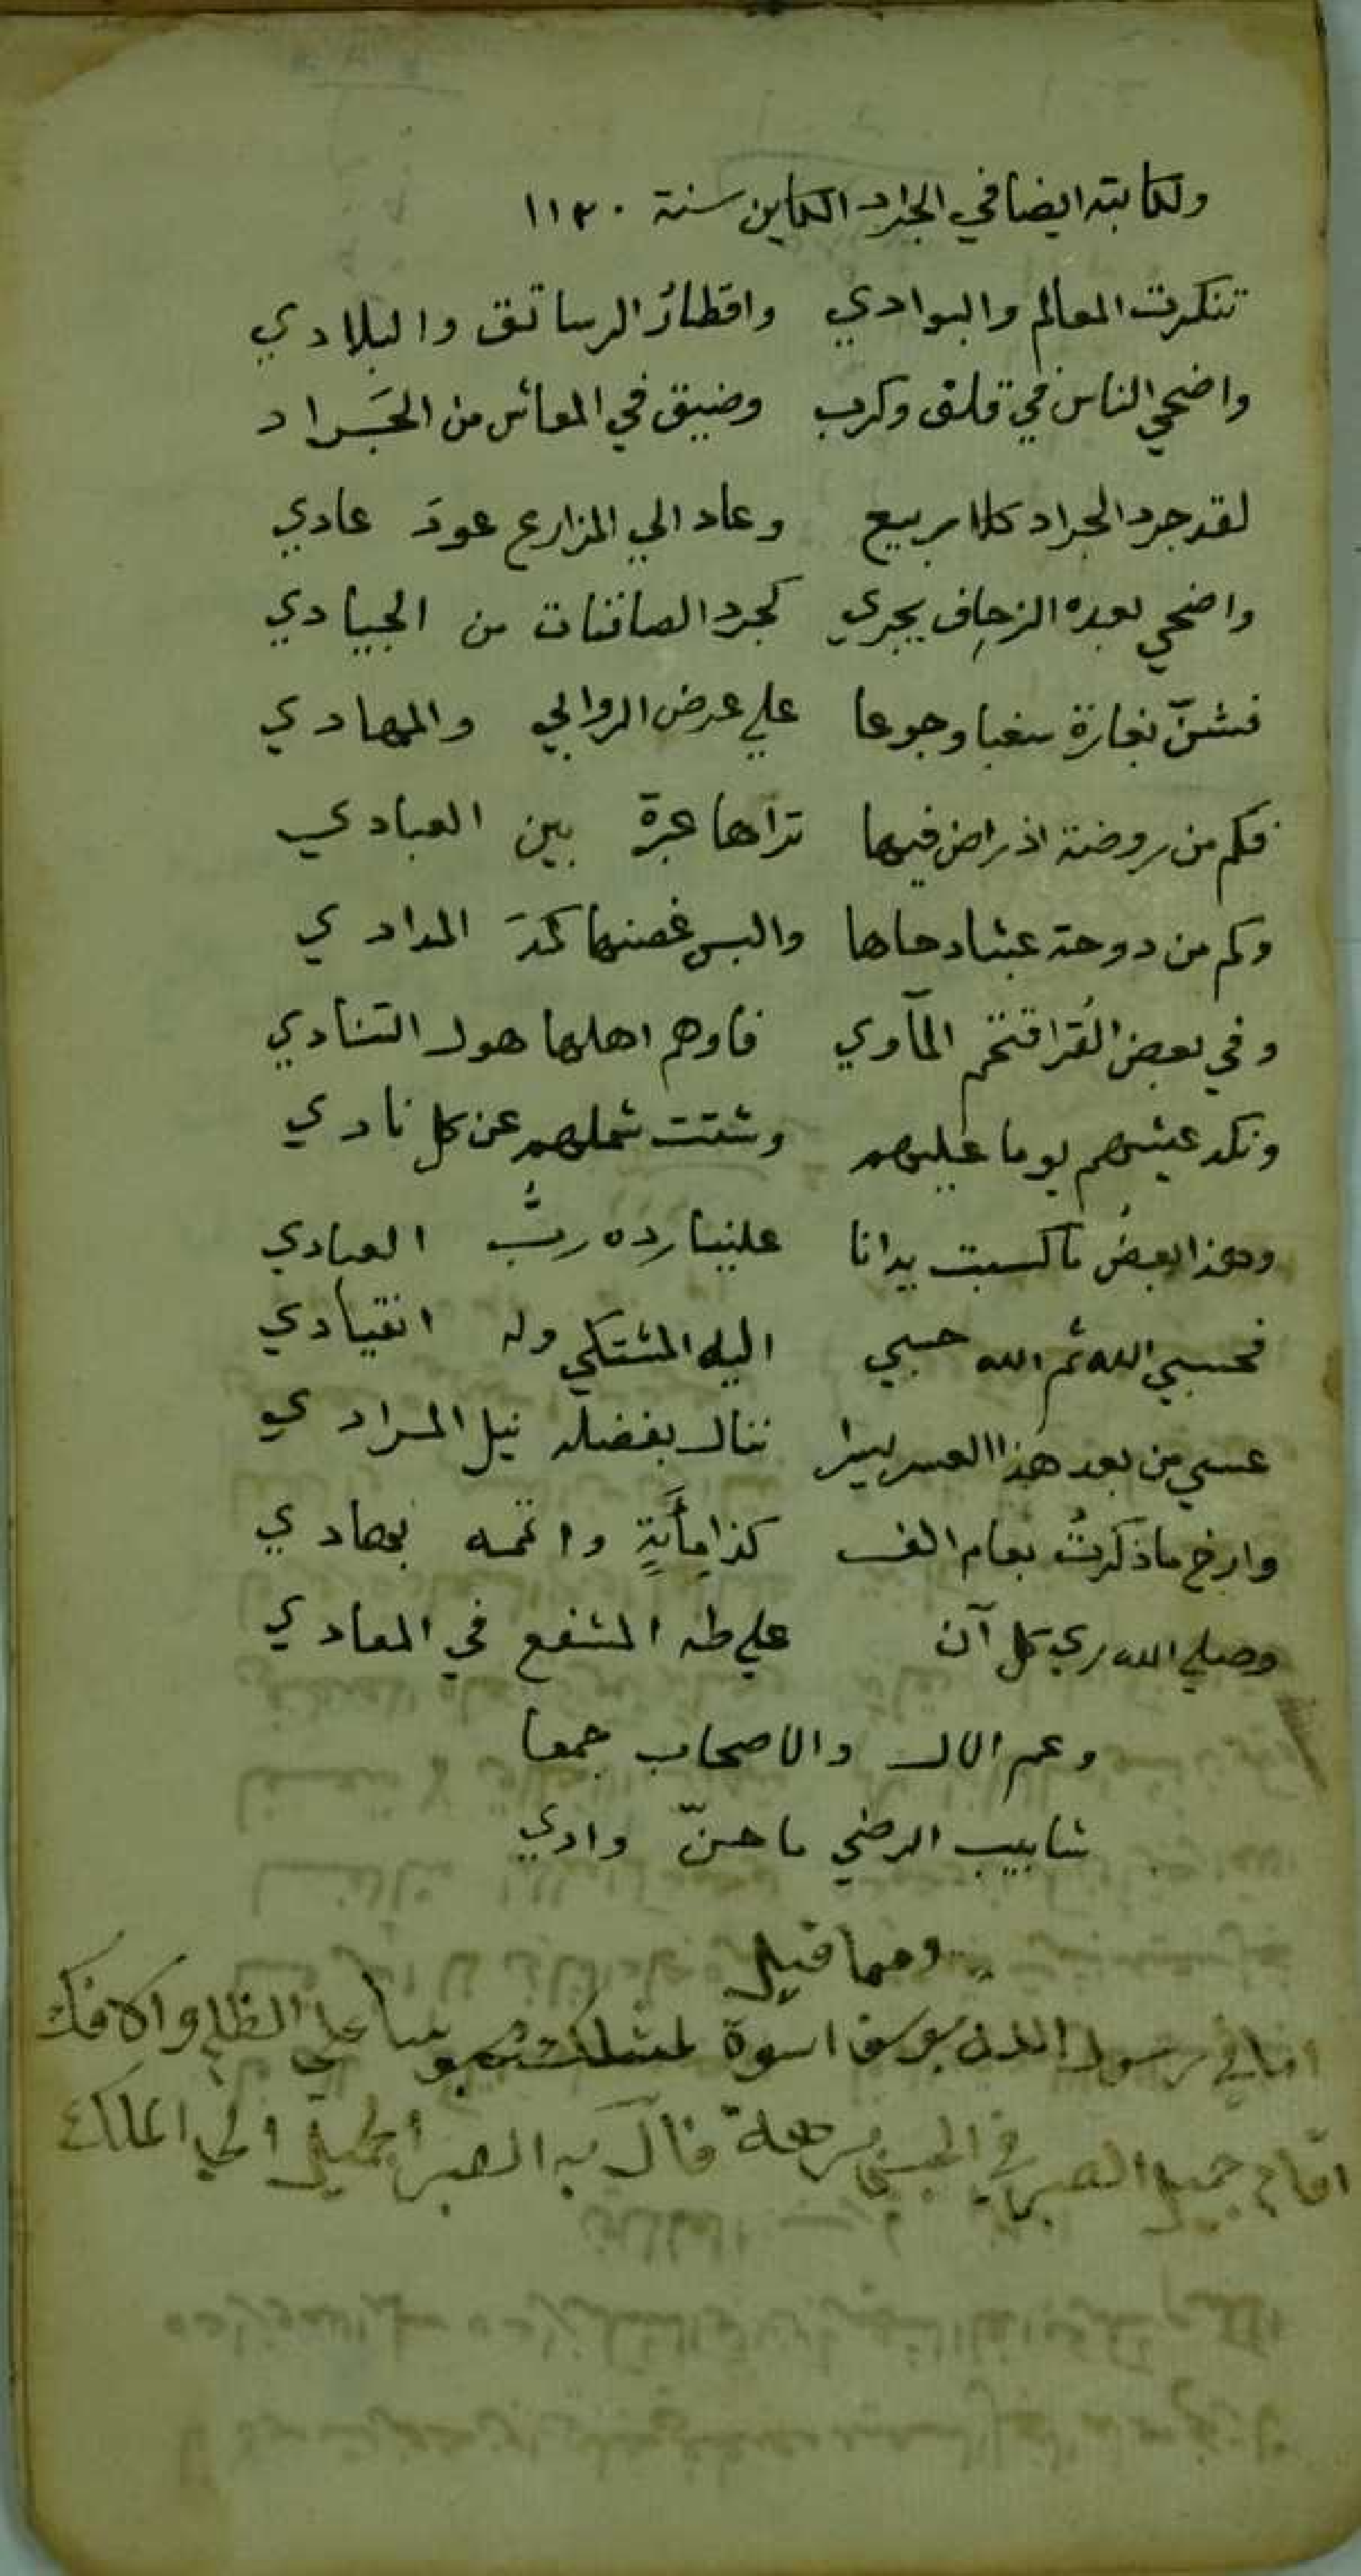 ولكاتبه ايضا في الجراد الكاين سنة ١١٣٠
تنكرت المعالم والبوادي واقطار الرساتق والبلادي
واضحي الناس في قلق وكرب وضيق في المعائش من الجَراد
لقد جرد الجراد كلا ربيع وعاد الي المزارع عودَ عادي
واضحي بعده الزحاف يجري كجرد الصافنات من الجيادي
فشنّ بغارة سغبا وجوعا علي عرض الروابي والمهادي
فكم من روضة اذ راض فيها تراها عبرة بين العبادي
وكم من دوحة عبثا دحاها والبس غصنها كمدَ المدادي
وفي بعض القُرا اقتحم المآوي فاوهم اهلها هول التنادي
ونكد عيشهم يوما عليهم وشتت شملهم عن كل نادي
وهذا بعضُ ما كسبت يدانا علينا رده ربُّ العبادي
فحسبي الله ثم الله حسبي اليه المشتكي وله انقيادي
عسي من بعد هذا العسر يسرا ننال بفضله نيل المرادي
وارخ ما ذكرتُ بعام الف كذا مِأَيَةٍ واتممه بهادي
وصلي الله ربي كل آن علي طه المشفع في المعادي
وعم الال والاصحاب جمعا
شابيب الرضي ما حنّ وادي
ومما قيل
اما في رسول الله يوسف اسوة لمثلك محبوسا علي الظلم والافك
اقام جميل الصبر في الحبس برهة فآل به الصبر الجميل الي الملك